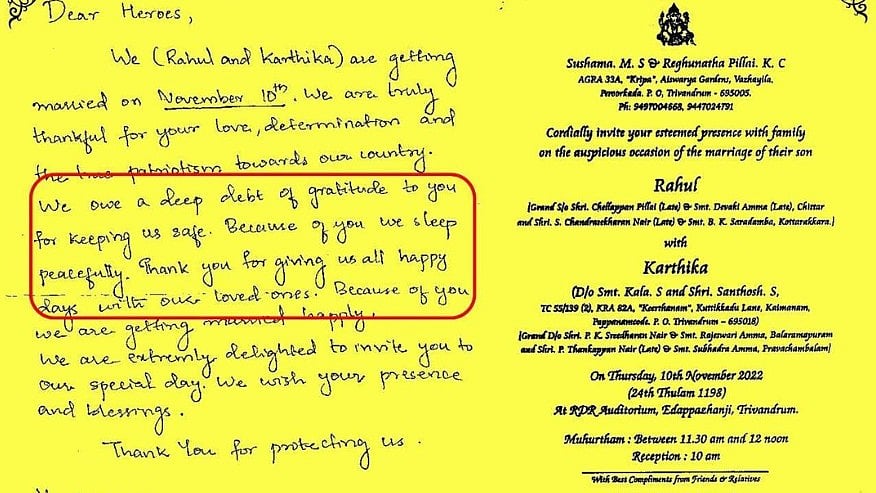 Dear Heroes,
We (Rahul and Karthika) are getting
married on November 10th. We are truly
thankful for your love, determination and
the true patriotism towards our country.
We owe a deep debt of gratitude to you
for keeping us safe. Because of you we sleep
peacefully. Thank you for giving us all happy
days with our loved ones. Because of you
we are getting married happily.
We are extremely delighted to invite you to
our special day. We wish your presence
and blessings.
Thank You for protecting us.
Sushama. M. S & Reghunatha Pillai. K. C
AGRA 33A, "Kripa", Aiswarya Gardens, Vazhayila,
Peroorkada. P. O, Trivandrum - 695005.
Ph: 9497004668, 9447024791
Cordially invite your esteemed presence with family
on the auspicious occasion of the marriage of their son
Rahul
[Grand S/o Shri. Chellappan Pillai (Late) & Smt. Devaki Amma (Late), Chittar
and Shri. S. Chandrasekharan Nair (Late) & Smt. B. K. Saradamba, Kottarakkara.]
with
Karthika
(D/o Smt. Kala. S and Shri. Santhosh. S,
TC 55/139 (2), KRA 62A, "Keerthanam", Kuttikkadu Lane, Kaimanam,
Pappanamcode. P. O. Trivandrum - 695018)
[Grand D/o Shri. P. K. Sreedharan Nair & Smt. Rajaswari Amma, Balaramapuram
and Shri. P. Thankappan Nair (Late) & Smt. Subhadra Amma, Pravachambalam]
On Thursday, 10th November 2022
(24th Thulam 1198)
At RDR Auditorium, Edappazhanji, Trivandrum.
Muhurtham : Between 11.30 am and 12 noon
Reception : 10 am
With Best Compliments from Friends & Relatives